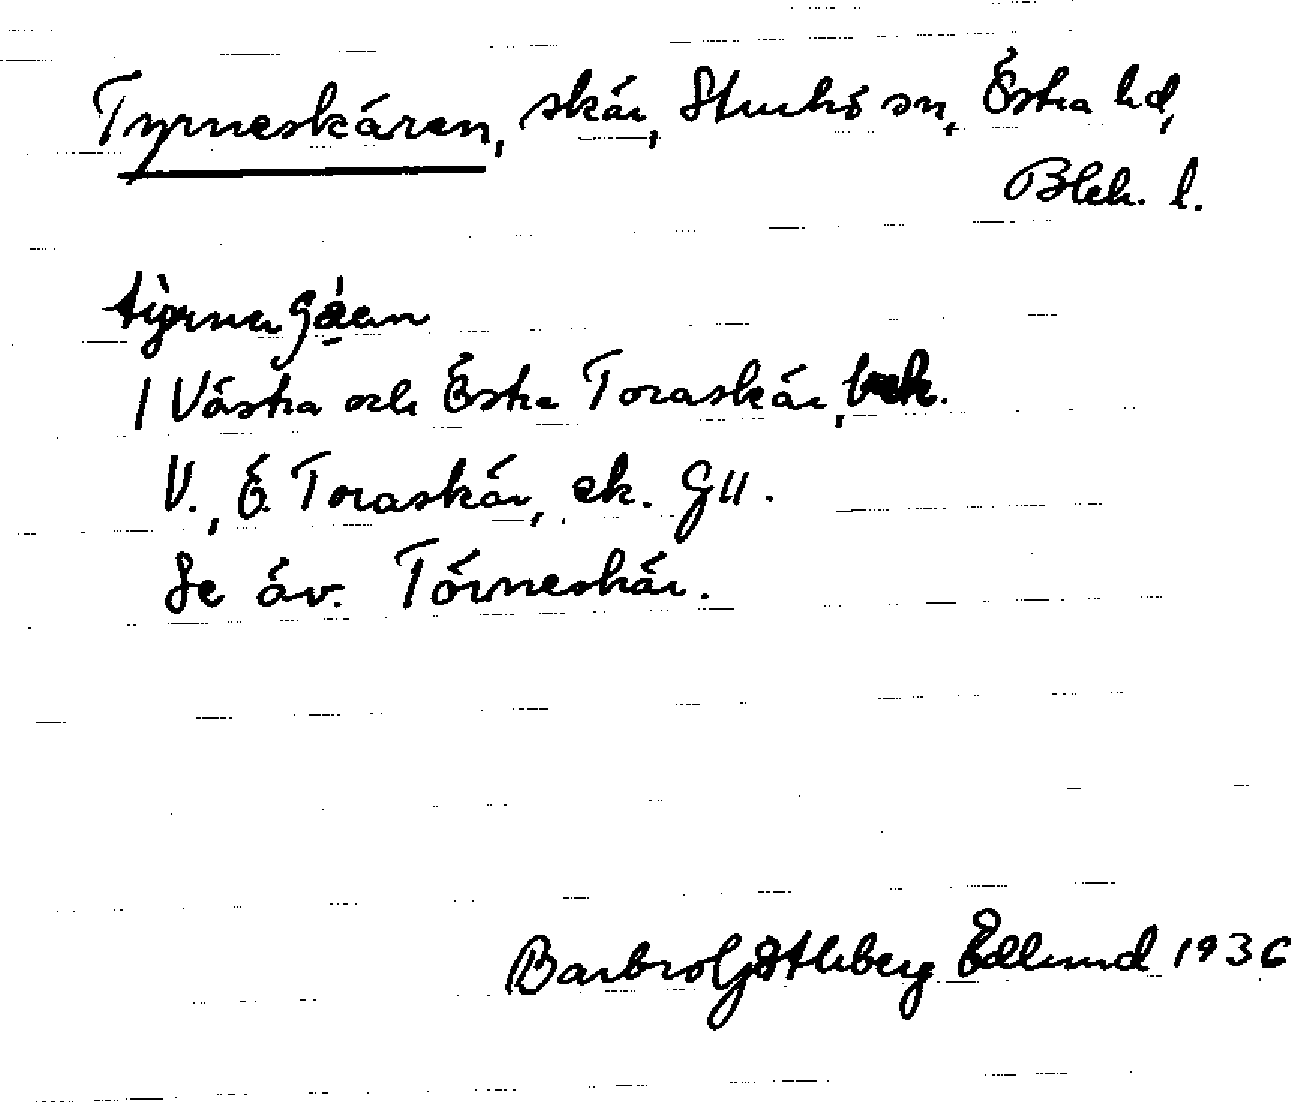 Tyrneskären, skär, Sturkö sn, Östra hd,
Blek. l.
/ Västra och Östra Toraskär, bek.
V., Ö. Toraskär, ek. GII.
Se äv. Törneskär.
Barbro Göthberg Edlund 1936